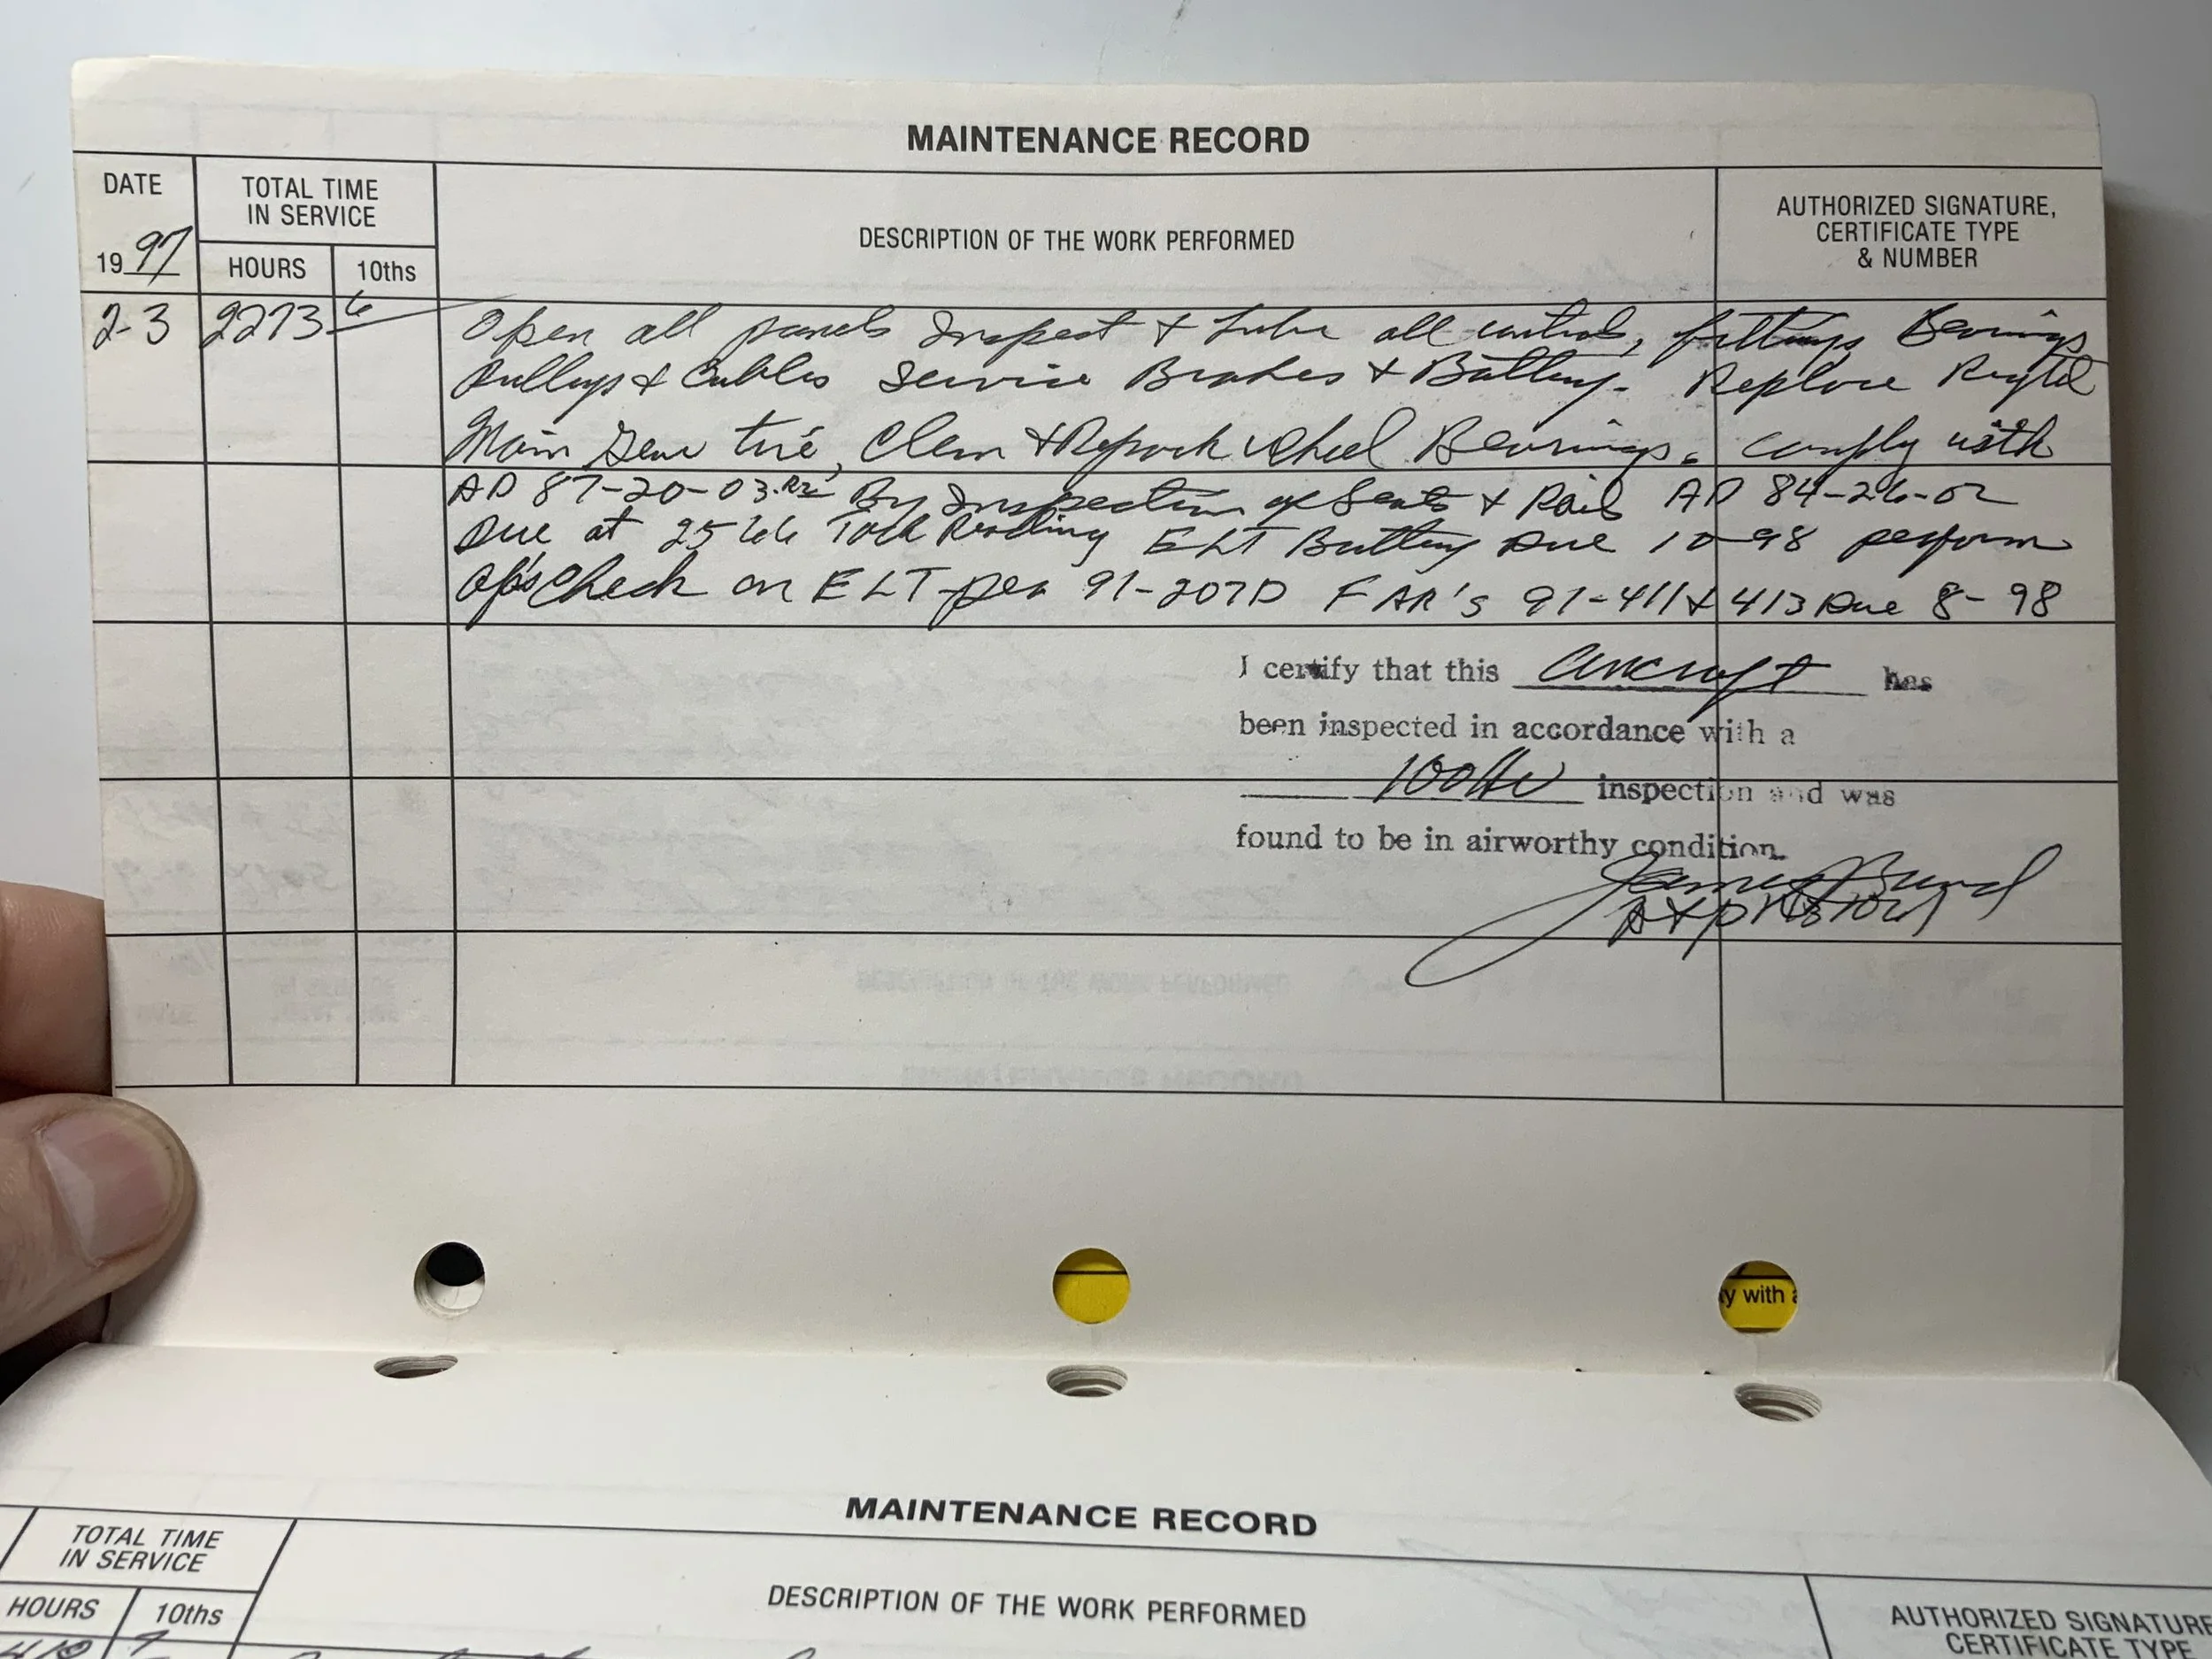 MAINTENANCE RECORD
DATE
TOTAL TIME
IN SERVICE
DESCRIPTION OF THE WORK PERFORMED
AUTHORIZED SIGNATURE,
CERTIFICATE TYPE
& NUMBER
1997
HOURS
10ths
2-3 2273 6 Open all panels Inspect & Lube all controls, fittings Bearings
Pulleys & Cables Service Brakes & Battery. Replace Right
Main Gear tire, Clean & Repack Wheel Bearings. comply with
AD 87-20-03.R2 By Inspection of Seats & Rails AD 84-26-02
Due at 2566 Tach Reading ELT Battery Due 10-98 perform
ops check on ELT per 91-207D FAR's 91-411 & 413 Due 8-98
I certify that this aircraft has
been inspected in accordance with a
100 Hr inspection and was
found to be in airworthy condition.
James
A&P
y with a
MAINTENANCE RECORD
TOTAL TIME
IN SERVICE
DESCRIPTION OF THE WORK PERFORMED
HOURS
10ths
AUTHORIZED SIGNATURE
CERTIFICATE TYPE